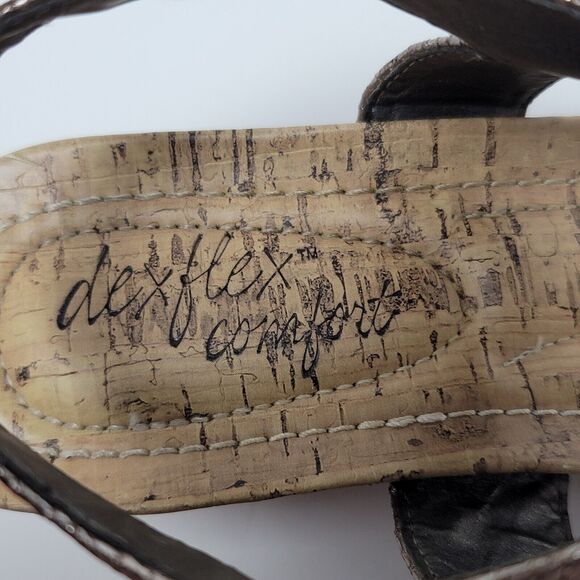 dexflex™
comfort